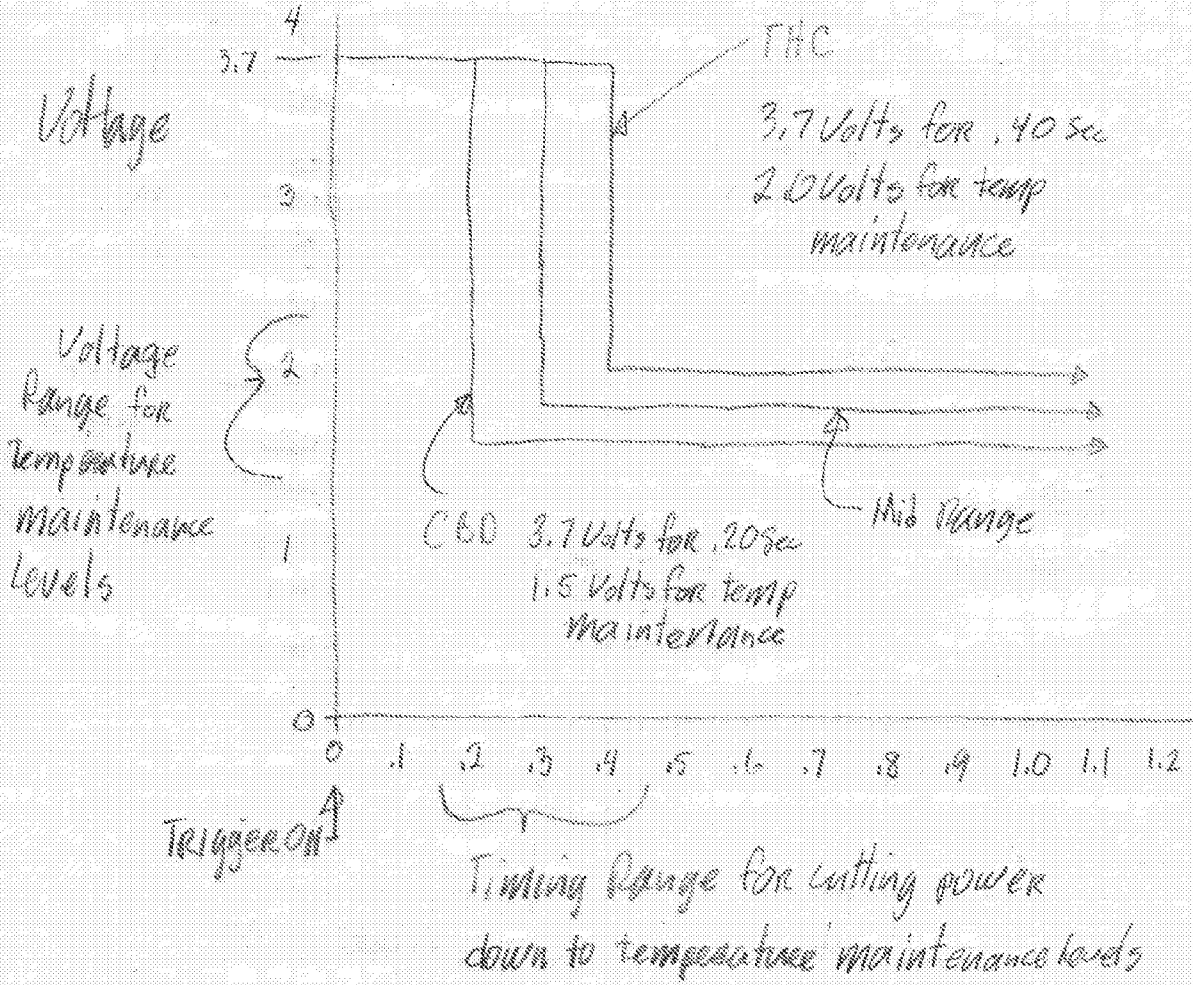 4
3.7
THC
Voltage
3.7 Volts for .40 sec
2.0 Volts for temp
maintenance
3
Voltage
Range for
Temperature
maintenance
Levels
2
1
Mid Range
CBD 3.7 Volts for .20 Sec
1.5 Volts for temp
maintenance
0
0 .1 .2 .3 .4 .5 .6 .7 .8 .9 1.0 1.1 1.2
Trigger On
Timing Range for cutting power
down to temperature maintenance levels